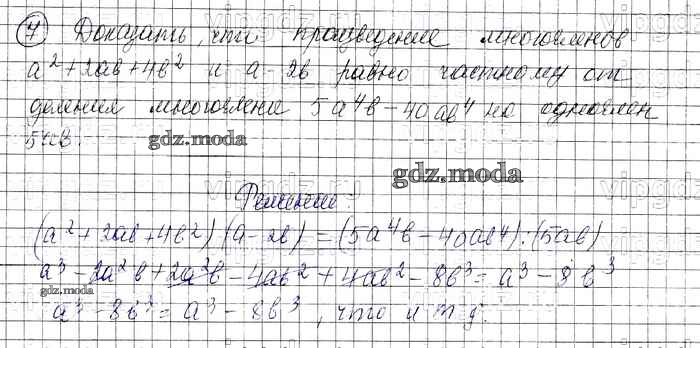 ④ Доказать, что произведение многочленов
a² + 2ab + 4b² и a - 2b равно частному от
деления многочлена 5a⁴b - 40ab⁴ на одночлен
5ab.
gdz.moda
gdz.moda
Решение
(a² + 2ab + 4b²)(a - 2b) = (5a⁴b - 40ab⁴):(5ab)
a³ - 2a²b + 2a²b - 4ab² + 4ab² - 8b³ = a³ - 8b³
gdz.moda
a³ - 8b³ = a³ - 8b³, что и т д.